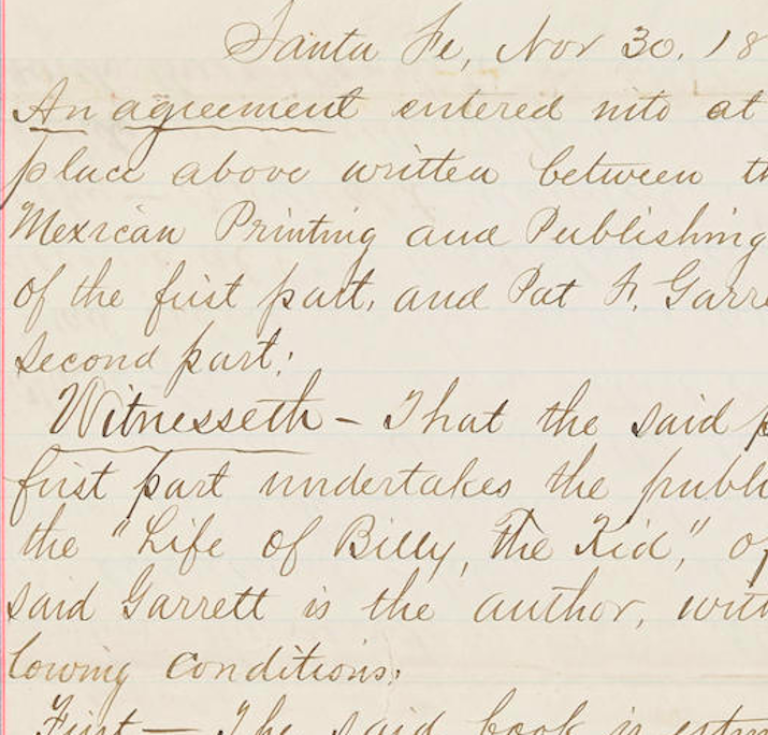 Santa Fe, Nov 30, 18
An agreement entered into at
place above written between th
Mexican Printing and Publishing
of the first part, and Pat F. Garre
second part:
Witnesseth – That the said p
first part undertakes the publi
the "Life of Billy, the Kid," of
said Garrett is the author, with
lowing conditions:
First — The said book is